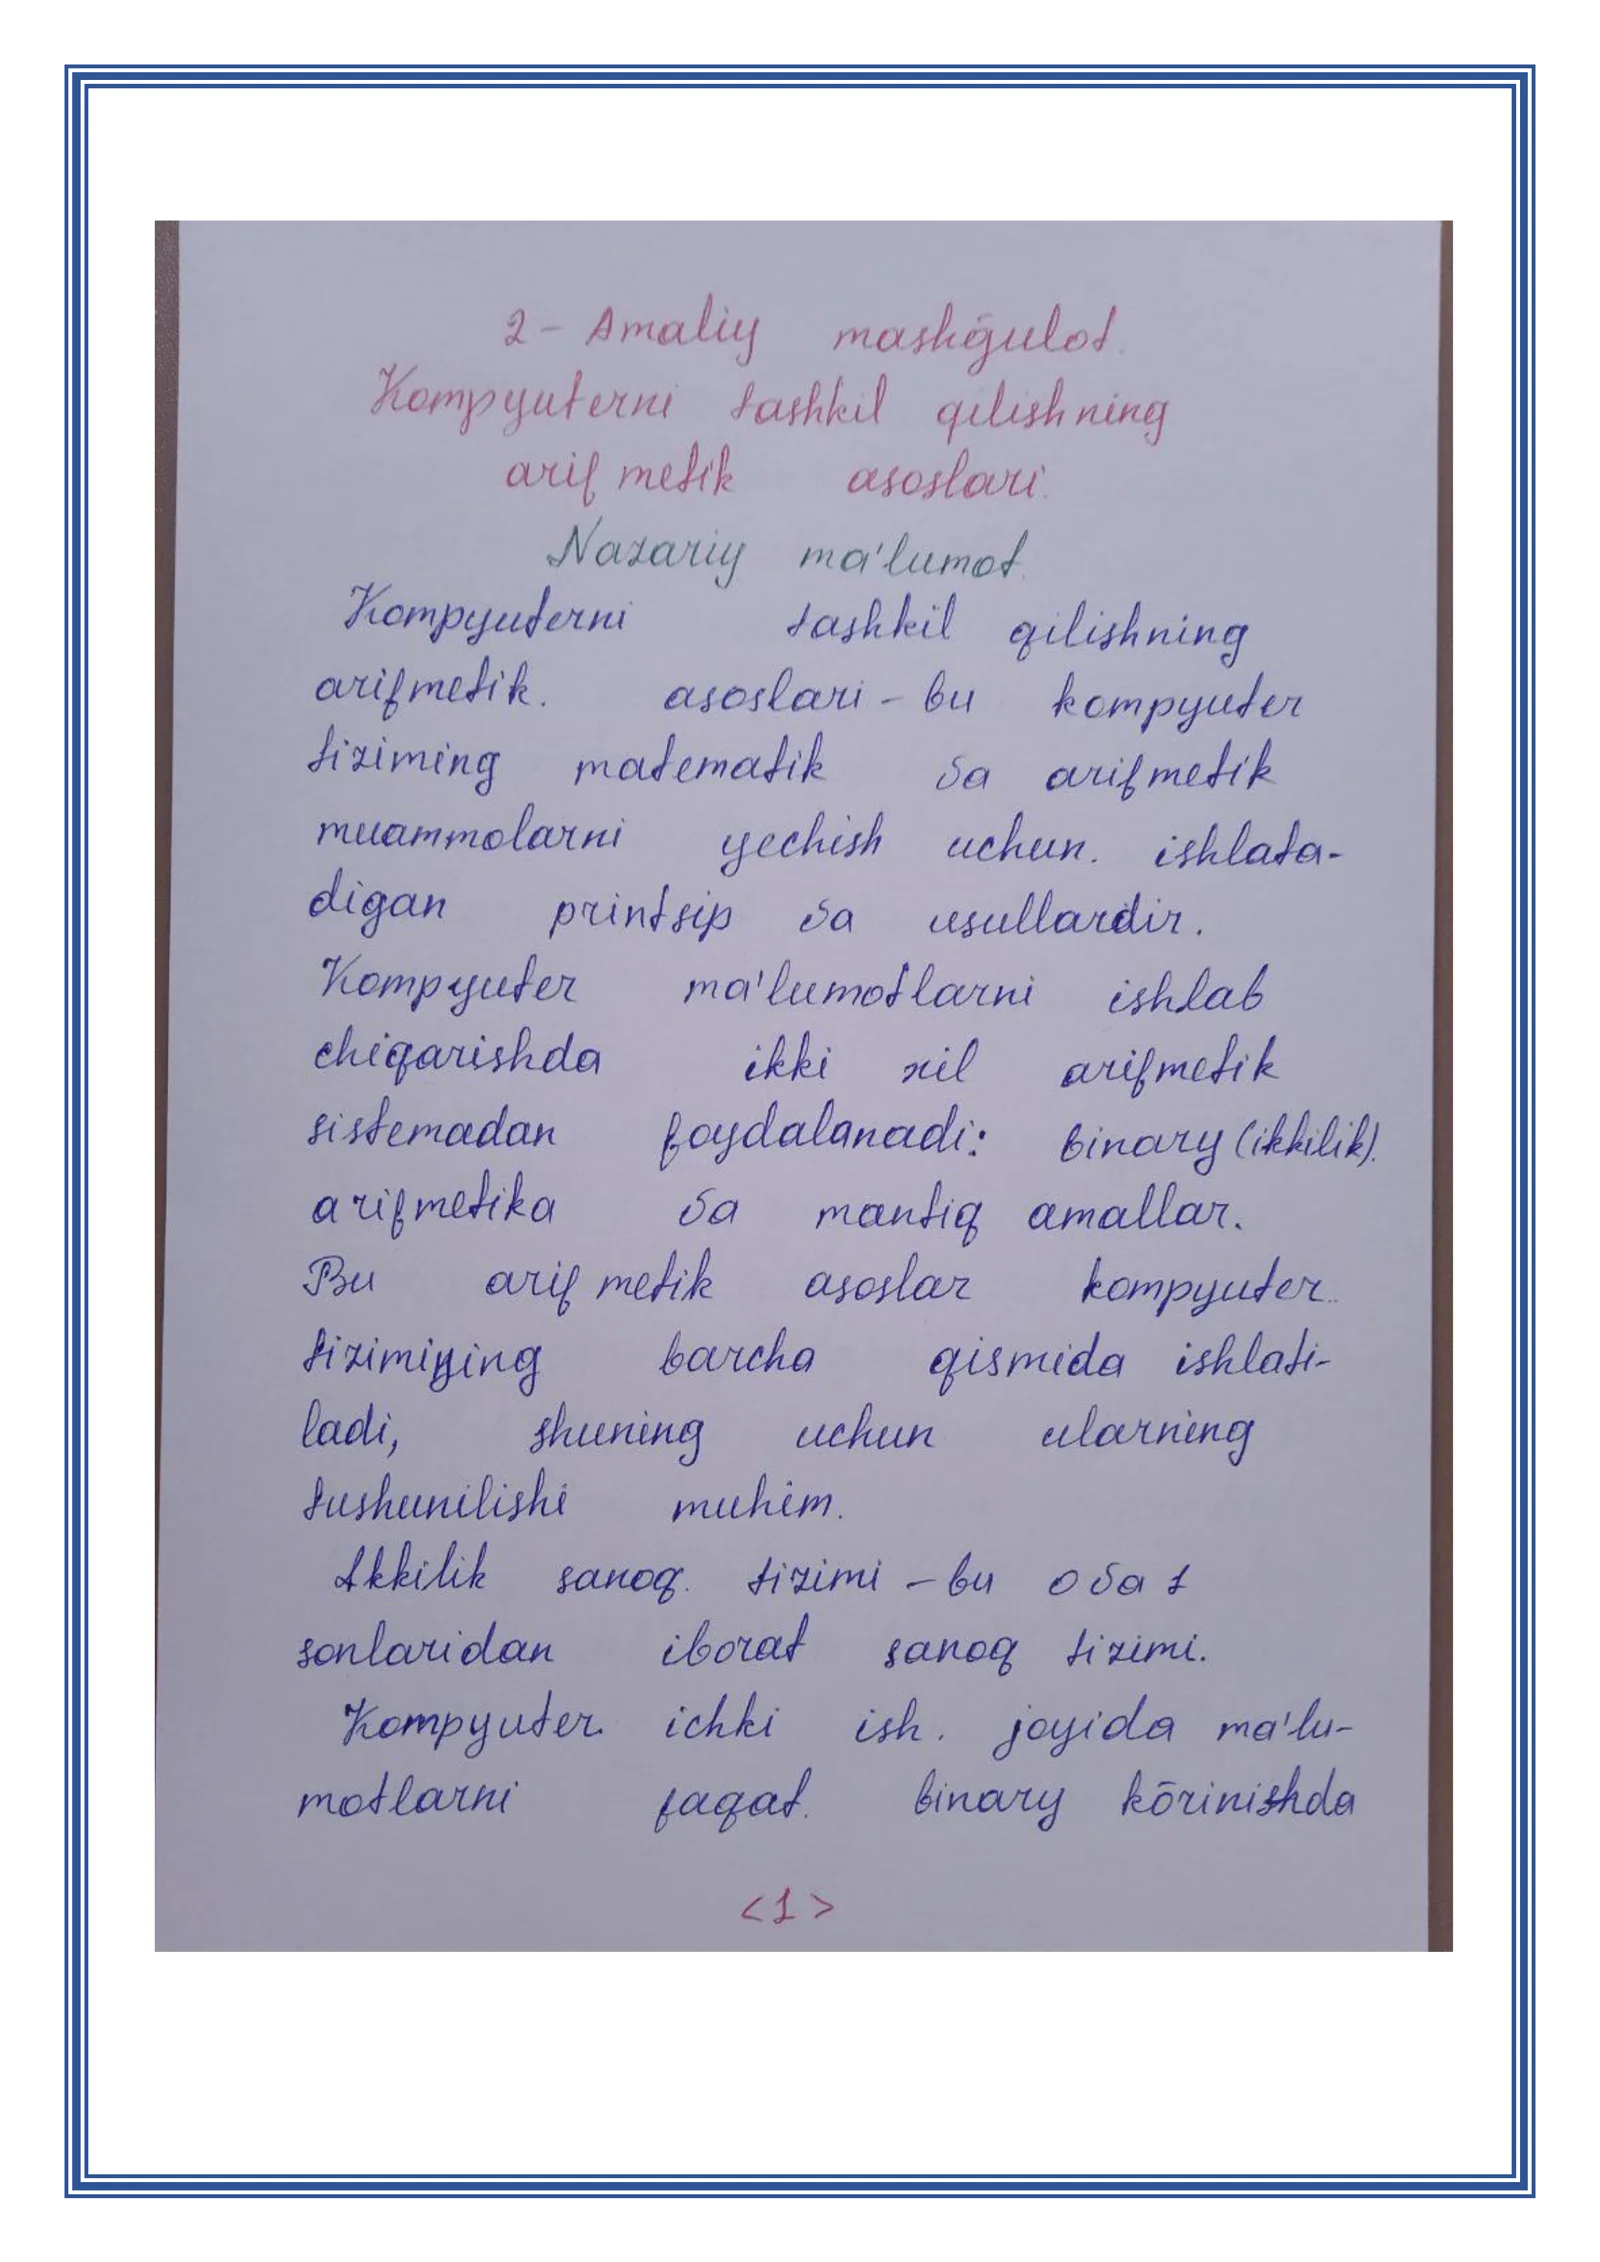 2 - Amaliy mashg̅ulot.
Kompyuterni tashkil qilishning
arifmetik asoslari.
Nazariy ma'lumot.
Kompyuterni tashkil qilishning
arifmetik. asoslari - bu kompyuter
tiziming matematik va arifmetik
muammolarni yechish uchun. ishlata-
digan printsip va usullardir.
Kompyuter ma'lumotlarni ishlab
chiqarishda ikki xil arifmetik
sistemadan foydalanadi: binary (ikkilik).
arifmetika va mantiq amallar.
Bu arifmetik asoslar kompyuter..
tizimining barcha qismida ishlati-
ladi, shuning uchun ularning
tushunilishi muhim.
Ikkilik sanoq. tizimi - bu 0 va 1
sonlaridan iborat sanoq tizimi.
Kompyuter. ichki ish. joyida ma'lu-
motlarni faqat. binary kōrinishda
<1>